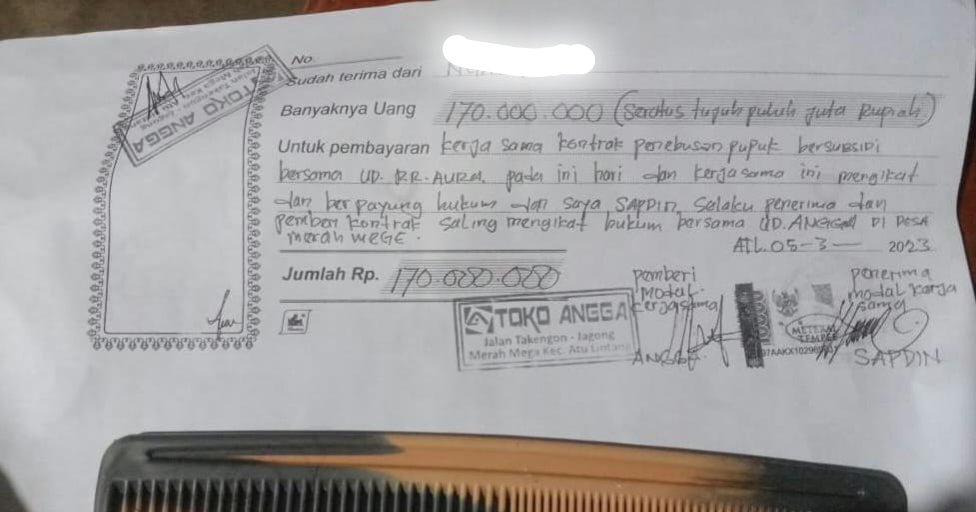 No
Sudah terima dari
Banyaknya Uang 170.000.000 (Seratus tujuh puluh juta Rupiah)
Untuk pembayaran kerja sama kontrak penebusan pupuk bersubsidi
bersama UD. RR. AURA. pada ini hari dan kerjasama ini mengikat
dan berpayung hukum dan saya SAPDIN selaku penerima dan
pemberi kontrak saling mengikat hukum bersama UD. ANGGA DI DESA
MERAH MEGE.
ATL. 05-3- 2023
Jumlah Rp. 170.000.000
pemberi modal kerjasama
penerima modal kerja sama
TOKO ANGGA
Jalan Takengon - Jagong
Merah Mega Kec. Atu Lintang
METERAI
TEMPEL
SAPDIN
TOKO ANGGA